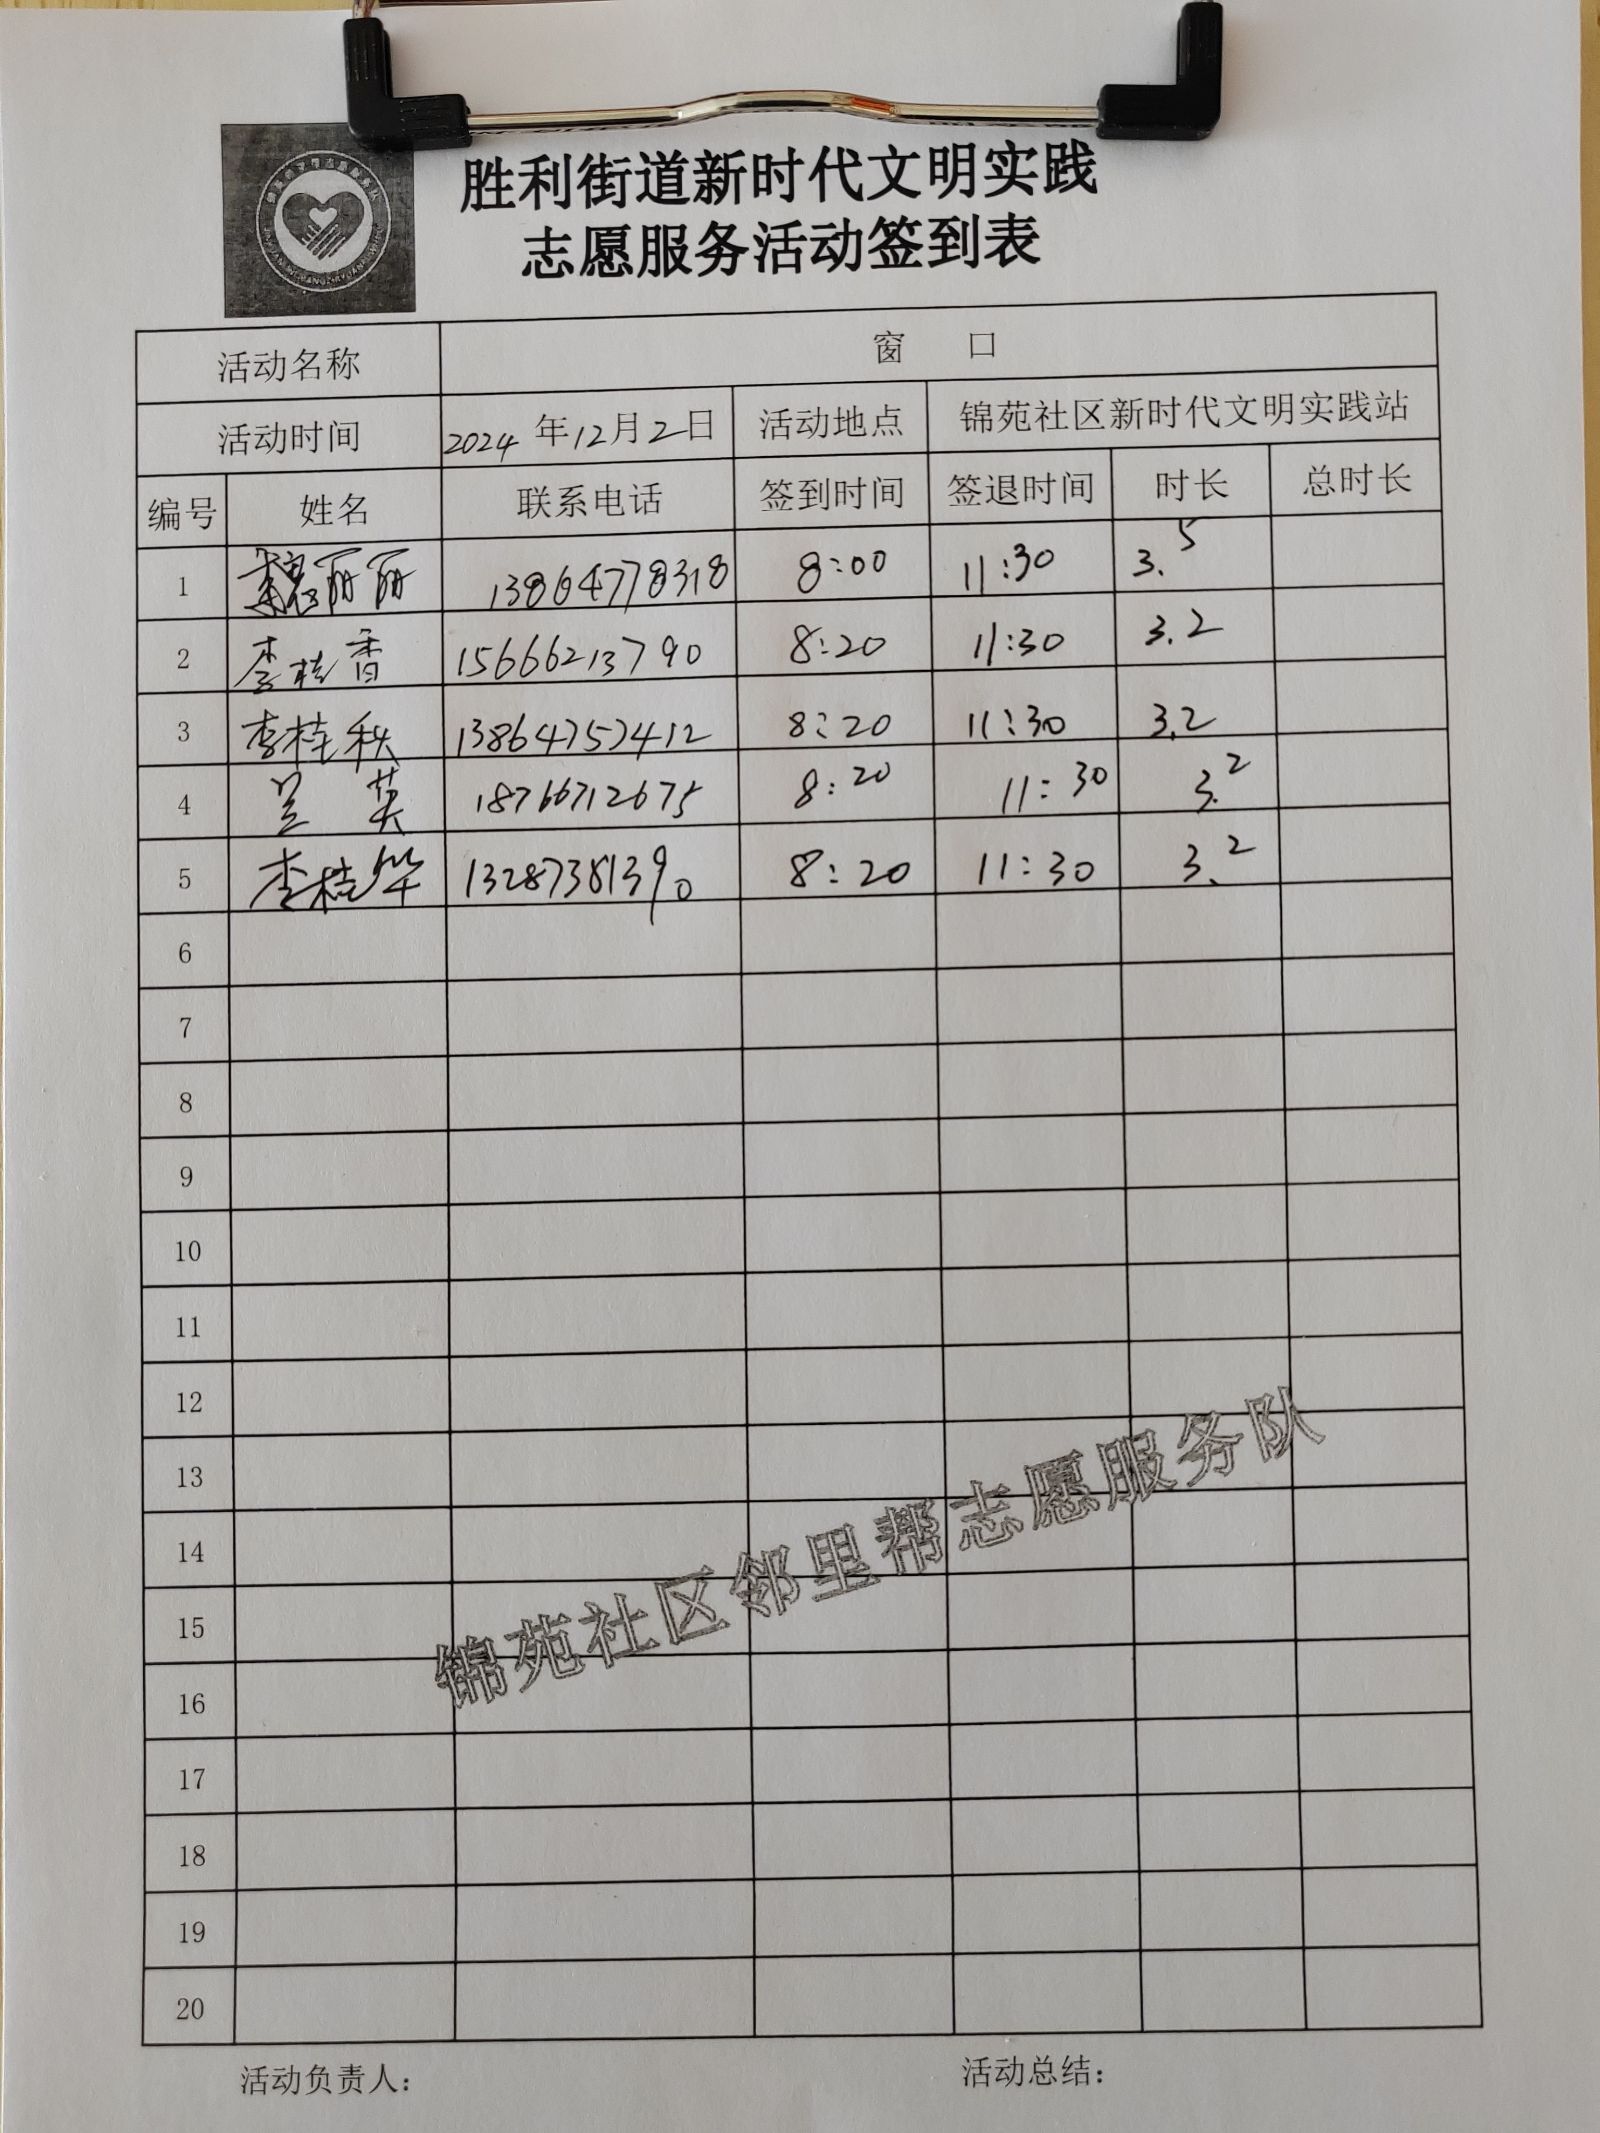 胜利街道新时代文明实践
志愿服务活动签到表
活动名称 窗 口
活动时间 2024年12月2日 活动地点 锦苑社区新时代文明实践站
编号 姓名 联系电话 签到时间 签退时间 时长 总时长
1 丽丽 13864778318 8:00 11:30 3.5
2 李桂香 15666213790 8:20 11:30 3.2
3 李桂秋 13864757412 8:20 11:30 3.2
4 兰英 18766712675 8:20 11:30 3.2
5 李桂华 13287381390 8:20 11:30 3.2
6
7
8
9
10
11
12
13
14
15
16
17
18
19
20
锦苑社区邻里帮志愿服务队
活动负责人： 活动总结：